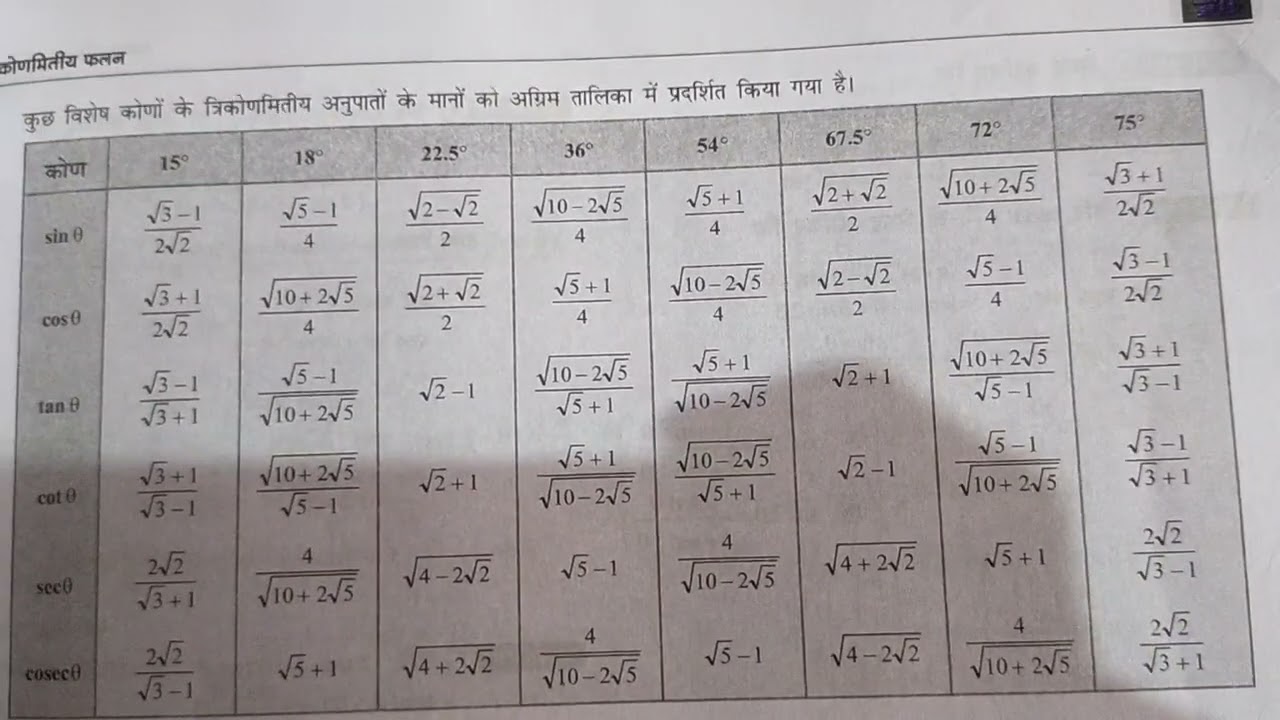 कोणमितीय फलन
कुछ विशेष कोणों के त्रिकोणमितीय अनुपातों के मानों को अग्रिम तालिका में प्रदर्शित किया गया है।
कोण 15° 18° 22.5° 36° 54° 67.5° 72° 75°
sin θ (√3 − 1)/(2√2) (√5 − 1)/4 √(2 − √2)/2 √(10 − 2√5)/4 (√5 + 1)/4 √(2 + √2)/2 √(10 + 2√5)/4 (√3 + 1)/(2√2)
cos θ (√3 + 1)/(2√2) √(10 + 2√5)/4 √(2 + √2)/2 (√5 + 1)/4 √(10 − 2√5)/4 √(2 − √2)/2 (√5 − 1)/4 (√3 − 1)/(2√2)
tan θ (√3 − 1)/(√3 + 1) (√5 − 1)/√(10 + 2√5) √2 − 1 √(10 − 2√5)/(√5 + 1) (√5 + 1)/√(10 − 2√5) √2 + 1 √(10 + 2√5)/(√5 − 1) (√3 + 1)/(√3 − 1)
cot θ (√3 + 1)/(√3 − 1) √(10 + 2√5)/(√5 − 1) √2 + 1 (√5 + 1)/√(10 − 2√5) √(10 − 2√5)/(√5 + 1) √2 − 1 (√5 − 1)/√(10 + 2√5) (√3 − 1)/(√3 + 1)
secθ 2√2/(√3 + 1) 4/√(10 + 2√5) √(4 − 2√2) √5 − 1 4/√(10 − 2√5) √(4 + 2√2) √5 + 1 2√2/(√3 − 1)
cosecθ 2√2/(√3 − 1) √5 + 1 √(4 + 2√2) 4/√(10 − 2√5) √5 − 1 √(4 − 2√2) 4/√(10 + 2√5) 2√2/(√3 + 1)